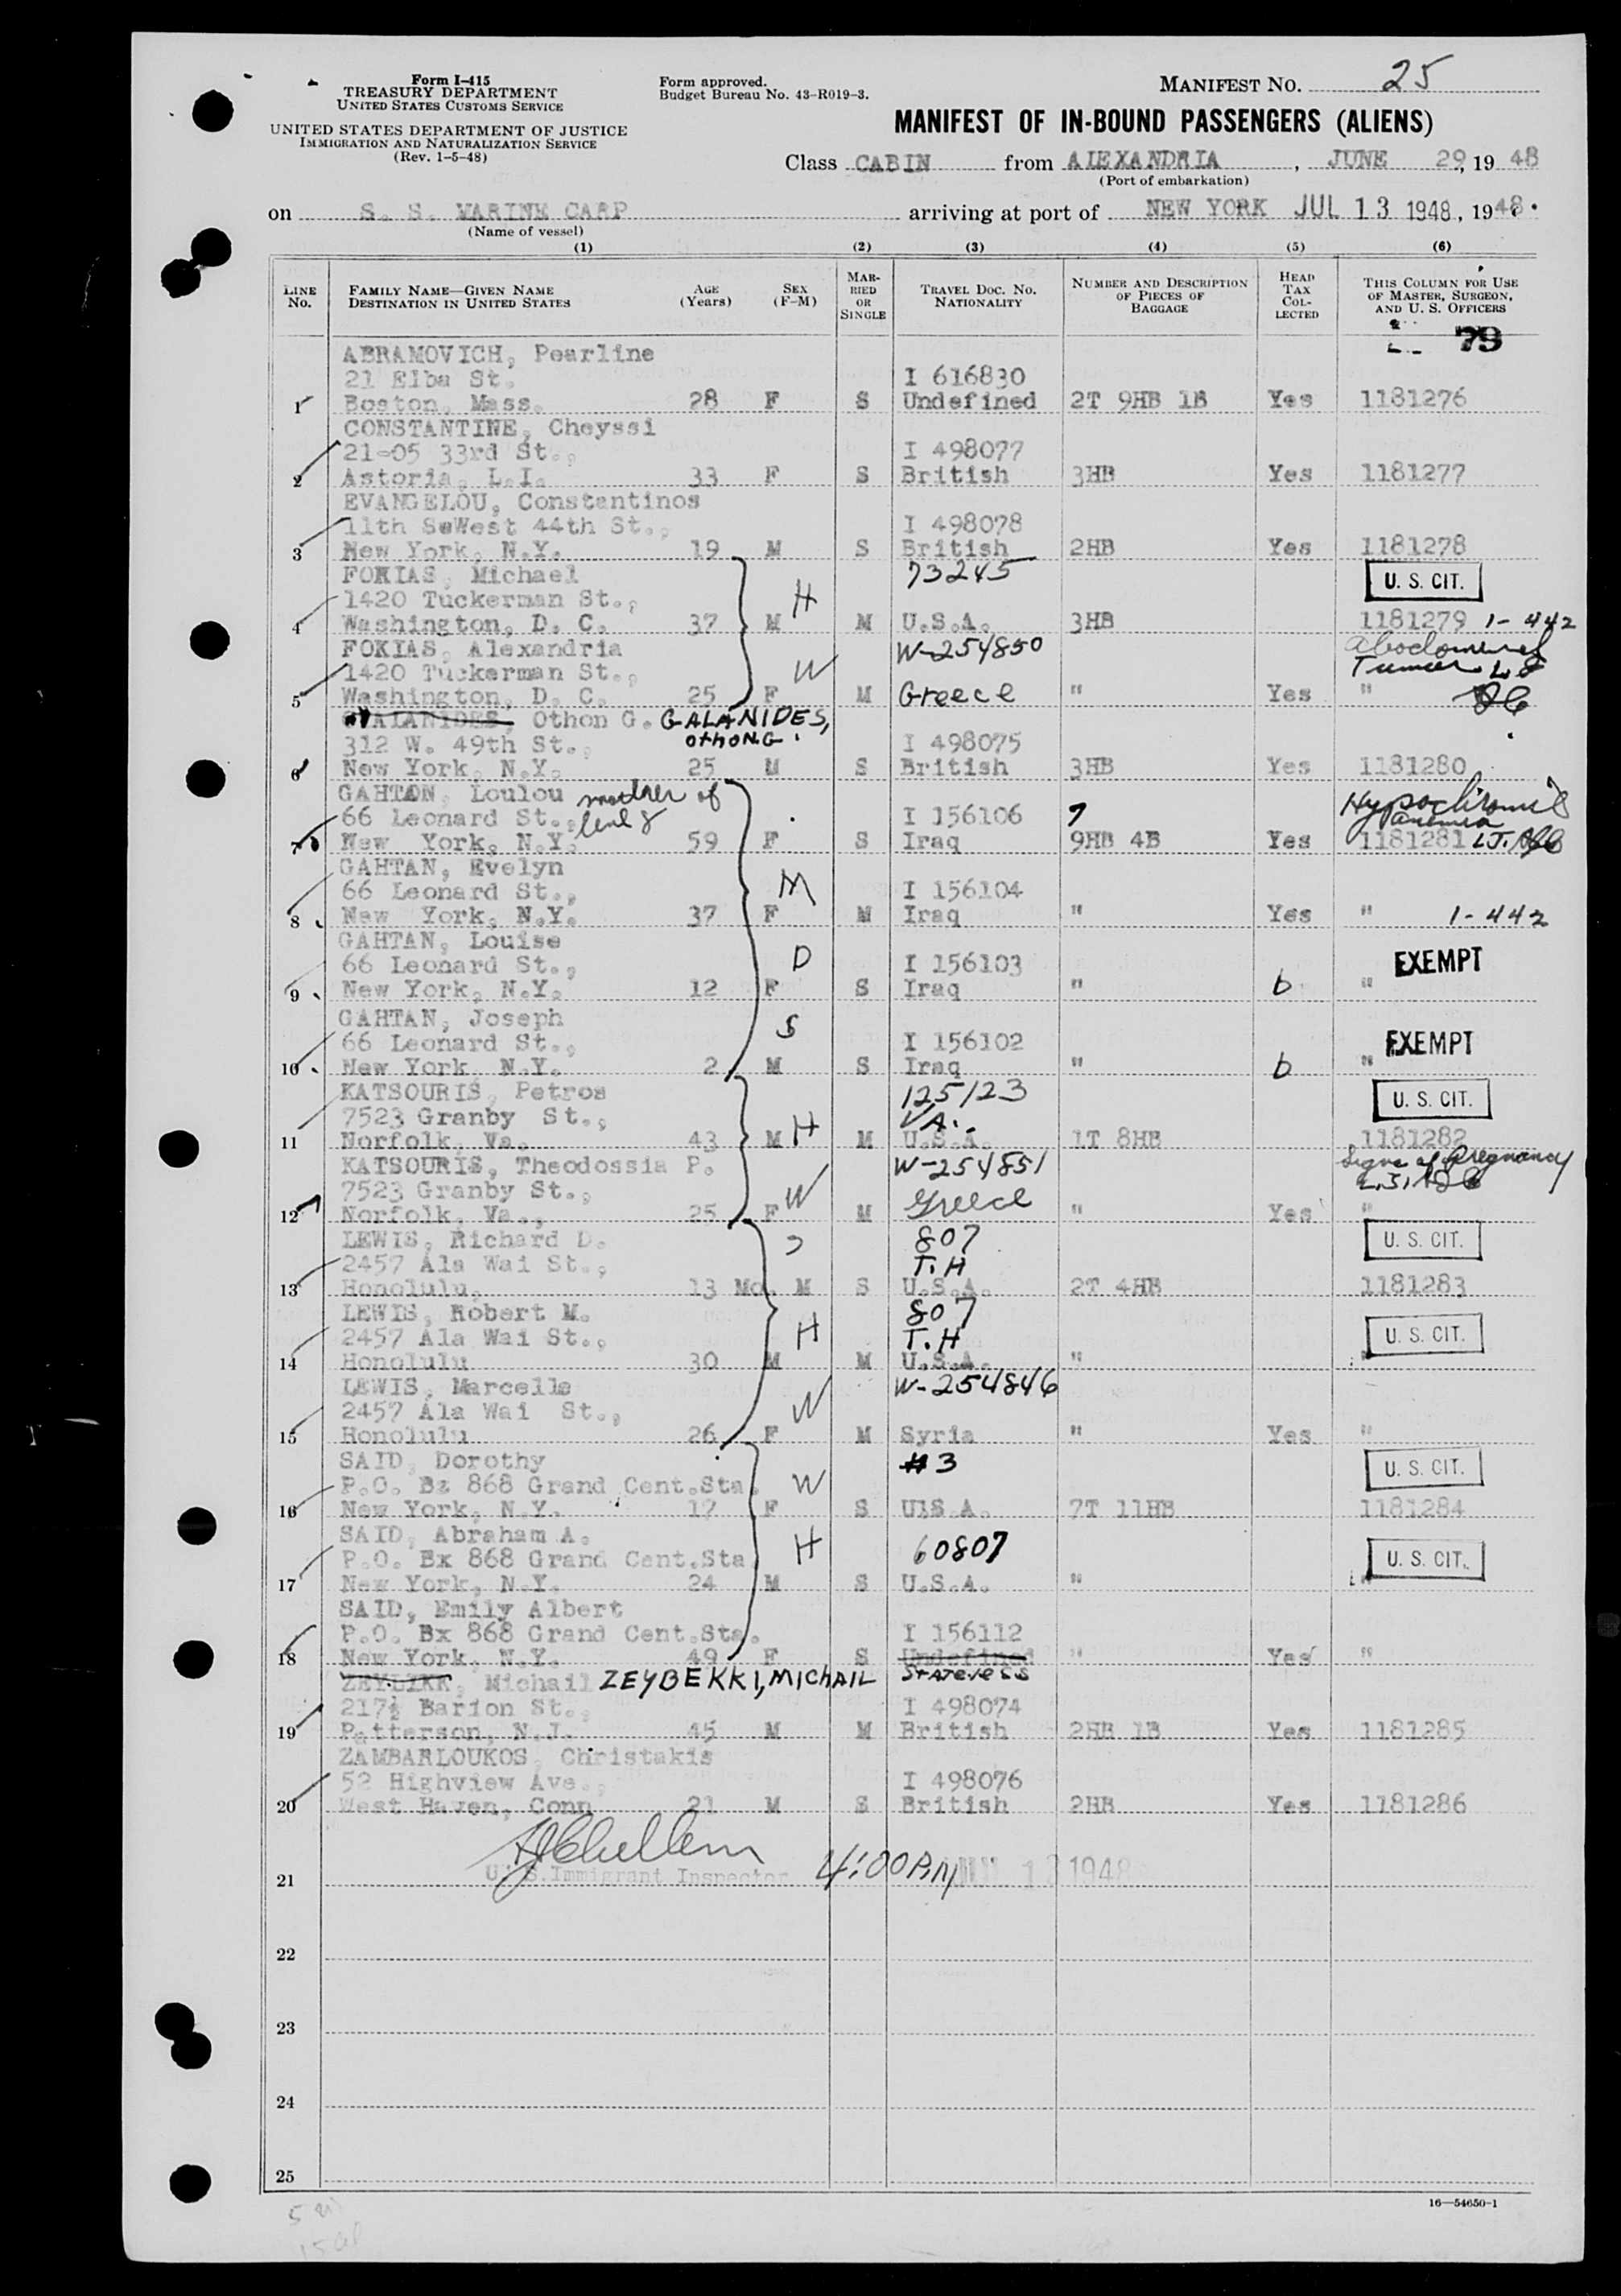 Form I-415
TREASURY DEPARTMENT
UNITED STATES CUSTOMS SERVICE
UNITED STATES DEPARTMENT OF JUSTICE
IMMIGRATION AND NATURALIZATION SERVICE
(Rev. 1-5-48)
Form approved.
Budget Bureau No. 43-R019-3.
MANIFEST NO. 25
MANIFEST OF IN-BOUND PASSENGERS (ALIENS)
Class CABIN from ALEXANDRIA, JUNE 29, 1948
(Port of embarkation)
on S. S. MARINE CARP arriving at port of NEW YORK JUL 13 1948, 1948.
(Name of vessel)
(1) (2) (3) (4) (5) (6)
LINE No. FAMILY NAME—GIVEN NAME DESTINATION IN UNITED STATES AGE (Years) SEX (F-M) MARRIED OR SINGLE TRAVEL DOC. NO. NATIONALITY NUMBER AND DESCRIPTION OF PIECES OF BAGGAGE HEAD TAX COLLECTED THIS COLUMN FOR USE OF MASTER, SURGEON, AND U. S. OFFICERS
79
ABRAMOVICH, Pearline
21 Elba St. I 616830
1 Boston, Mass. 28 F S Undefined 2T 9HB 1B Yes 1181276
CONSTANTINE, Cheyssi
21-05 33rd St., I 498077
2 Astoria, L.I. 33 F S British 3HB Yes 1181277
EVANGELOU, Constantinos
11th SeWest 44th St., I 498078
3 New York, N.Y. 19 M S British 2HB Yes 1181278
FOKIAS, Michael 73245 U. S. CIT.
1420 Tuckerman St., H
4 Washington, D. C. 37 M M U.S.A. 3HB 1181279 1-442
FOKIAS, Alexandria W-254850 abdominal
1420 Tuckerman St., W Tumor
5 Washington, D. C. 25 F M Greece " Yes "
Othon G. GALANIDES,
312 W. 49th St., OthoNG. I 498075
6 New York, N.Y. 25 M S British 3HB Yes 1181280
GAHTAN, Loulou mother of Hypochromic
66 Leonard St., line 8 I 156106 7 anemia
7 New York, N.Y. 59 F S Iraq 9HB 4B Yes 1181281
GAHTAN, Evelyn
66 Leonard St., M I 156104
8 New York, N.Y. 37 F M Iraq " Yes " 1-442
GAHTAN, Louise
66 Leonard St., D I 156103 EXEMPT
9 New York, N.Y. 12 F S Iraq " b "
GAHTAN, Joseph
66 Leonard St., S I 156102 EXEMPT
10 New York, N.Y. 2 M S Iraq " b "
KATSOURIS, Petros 125123 U. S. CIT.
7523 Granby St., H VA.
11 Norfolk, Va. 43 M M U.S.A. 1T 8HB 1181282
KATSOURIS, Theodossia P. W-254851 Signs of Pregnancy
7523 Granby St., W
12 Norfolk, Va., 25 F M Greece " Yes "
LEWIS, Richard D. 807 U. S. CIT.
2457 Ala Wai St., T.H
13 Honolulu, 13 Mo. M S U.S.A. 2T 4HB 1181283
LEWIS, Robert M. 807 U. S. CIT.
2457 Ala Wai St., H T.H
14 Honolulu 30 M M U.S.A. " "
LEWIS, Marcelle W-254846
2457 Ala Wai St., W
15 Honolulu 26 F M Syria " Yes "
SAID, Dorothy #3 U. S. CIT.
P.O. Bx 868 Grand Cent.Sta. W
16 New York, N.Y. 17 F S U.S.A. 7T 11HB 1181284
SAID, Abraham A. H 60807 U. S. CIT.
P.O. Bx 868 Grand Cent.Sta.
17 New York, N.Y. 24 M S U.S.A. " "
SAID, Emily Albert
P.O. Bx 868 Grand Cent.Sta. I 156112
18 New York, N.Y. 49 F S Undefined " Yes "
Michail ZEYBEKKI, MICHAIL STATELESS
217½ Barion St., I 498074
19 Patterson, N.J. 45 M M British 2HB 1B Yes 1181285
ZAMBARLOUKOS, Christakis
52 Highview Ave., I 498076
20 West Haven, Conn 21 M S British 2HB Yes 1181286
21 U. S. Immigrant Inspector 4:00 P.M JUL 13 1948
22
23
24
25
16—54650-1